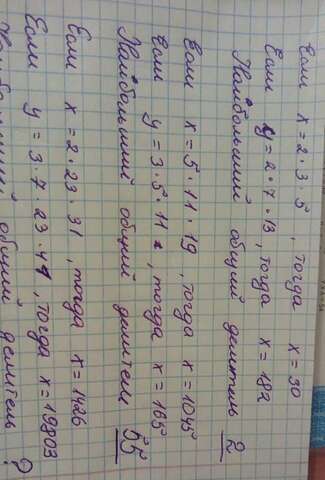 Если x = 2 · 3 · 5, тогда x = 30
Если y = 2 · 7 · 13, тогда x = 182
Наибольший общий делитель 2
Если x = 5 · 11 · 19, тогда x = 1045
Если y = 3 · 5 · 11, тогда x = 165
Наибольший общий делитель 55
Если x = 2 · 23 · 31, тогда x = 1426
Если y = 3 · 7 · 23 · 41, тогда x = 19803
Наибольший общий делитель ?